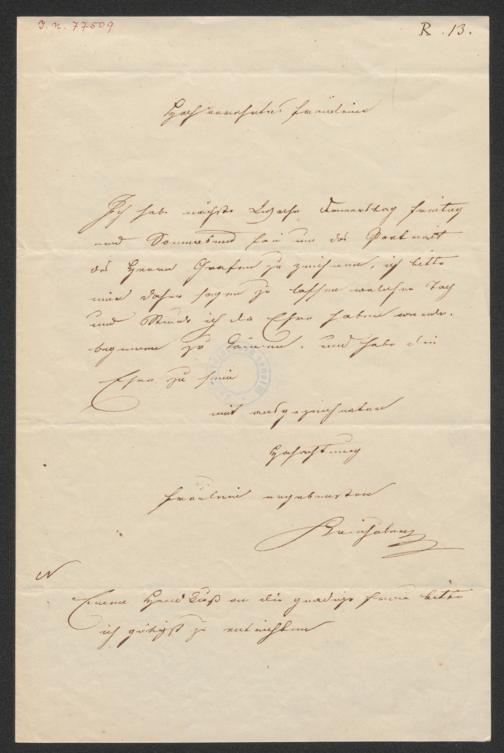 J. N. 77509
R. 13.
Hochverehrtes Fräulein
Ich habe nächste Woche Donnerstag Freitag
und Sonnabend frei um das Portrait
des Herrn Grafen zu zeichnen, ich bitte
mir daher sagen zu lassen welchen Tag
und Stunde ich die Ehre haben werde.
beginnen zu können. und habe die
Ehre zu sein
mit ausgezeichneter
Hochachtung
Fräulein ergebenster
Kriehuber
Einen Hand Kuß an die gnädige Frau bitte
ich gütigst zu entrichten